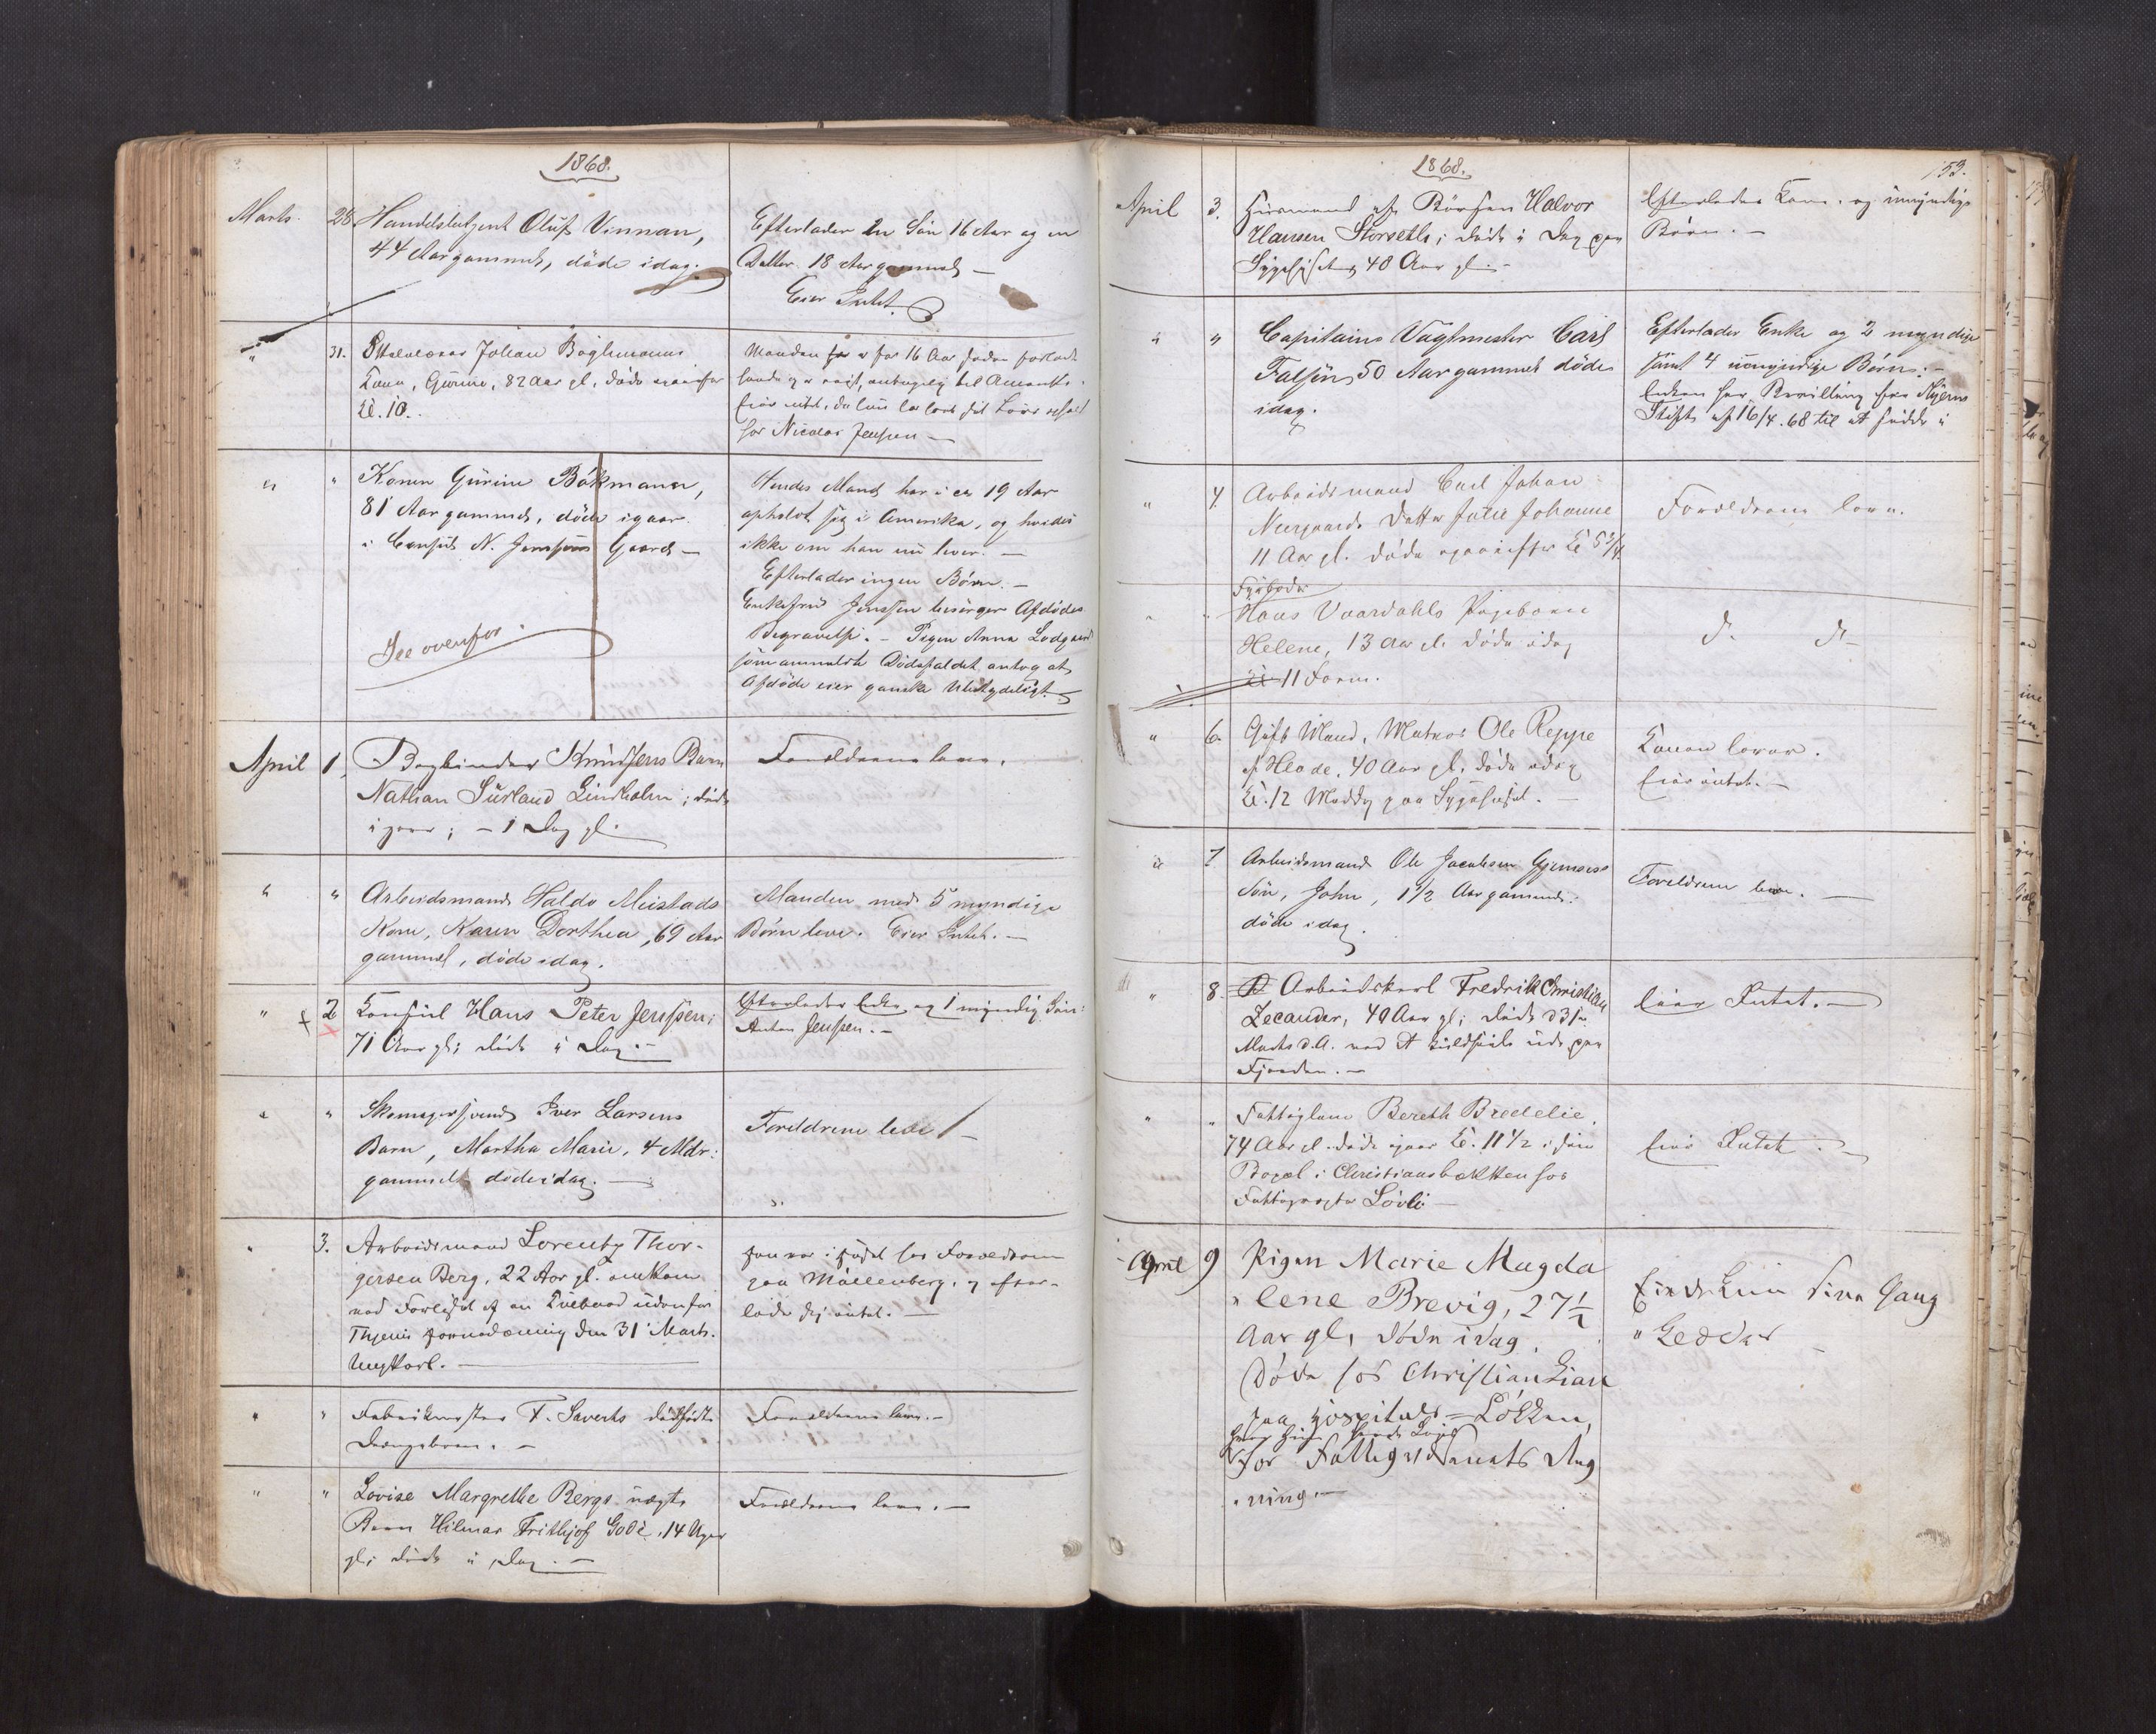 1868.
Marts. 28. Handelsbetjent Oluf Vinnan,
44 Aar gammel, döde idag.
Efterlader en Sön 16 Aar og en
Datter 18 Aar gammel —
Eier Intet.
" 31. Johan Böghmanns
Kone, Gurine, 82 Aar gl. döde
Kl. 10.
Manden for 16 Aar siden
til Amerika.
hos Nicolai Jenssen —
" " Konen Gurine Bökmann,
81 Aar gammel, döde igaar
i Consul N. Jenssens Gaard —
See ovenfor.
Hendes Mand har i ca 19 Aar
opholdt sig i Amerika, og hvides
ikke om han nu lever. —
Efterlader ingen Börn. —
Enkefru Jenssen besörger Afdödes
Begravelse. — Pigen Anna
som anmeldte Dödsfaldet, antog at
Afdöde eier ganske Ubetydeligt. —
April 1. Bogbinder Knudsens Barn
Nathan Lindholm; döde
igaar; — 1 Dag gl.
Forældrene leve.
" " Arbeidsmand Haldo Meistads
Kone, Karen Dorthea, 69 Aar
gammel, döde idag.
Manden med 5 myndige
Börn leve. Eier Intet. —
" 2 Konsul Hans Peter Jenssen;
71 Aar gl; döde i Dag. —
Efterlader Enke og 1 myndig Sön:
Anton Jenssen. —
" " Skomagersvend Iver Larsens
Barn, Martha Marie, 4 Mdr:
gammelt döde idag. —
Foreldrene leve —
" 3. Arbeidsmand Lorentz Thor-
gersen Berg, 22 Aar gl. omkom
ved Forliset af en udenfor
den 31 Marts.
Ungkarl. —
han var i Huset hos Forældrene
paa Möllenberg, og efter-
lod sig intet. —
" " Fabrikmester F. Saverts dödfödte
Drengebarn. —
Forældrene leve. —
" " Lovise Margrethe Bergs uægte
Barn Hilmar Frithjof Gode, 14 Uger
gl; döde i Dag. —
Forældrene leve. —
1868.
153.
April 3. Huusmand af Börsen Halvor
Hansen Storseth; döde i Dag paa
Sygehuset, 48 Aar gl. —
Efterlader Kone og umyndige
Börn. —
" " Capitains Vagtmester Carl
Falsen, 50 Aar gammel döde
idag.
Efterlader Enke og 2 myndige
samt 4 umyndige Börn. —
Enken har Bevilling fra
Stift af 16/4. 68 til at sidde i
" 4. Arbeidsmand Carl Johan
Neergaards Datter Julie Johanne
11 Aar gl. döde
Forældrene leve.
Fyrböder
" " Hans Vaardahls Pigebarn
Helene, 13 Aar gl. döde idag
Kl 11 Form.
d. d —
" 6. Gift Mand, Matros Ole Reppe
af Hlade, 40 Aar gl. döde idag
Kl. 12 Middag paa Sygehuset. —
Konen lever.
Eier intet. —
" 7 Arbeidsmand Ole Jacobsen
Sön, John, 1 1/2 Aar gammel
döde idag.
Foreldrene leve. —
" 8. Arbeidskarl Fredrik Christian
Zecander, 49 Aar gl; döde d 31te
Marts d.A. ved et ude paa
Fjorden. —
Eier Intet. —
" " Fattiglem Bereth Bredelie,
74 Aar gl. döde igaar Kl. 11 1/2 i sin
Bopæl i Christiansbakken hos
Fattigvogter Lövli —
Eier Intet. —
April 9 Pigen Marie Magda
" lene Brevig, 27 1/2
Aar gl, döde idag.
Döde hos Christian Lian
paa Hospitals-Lökken,
for Fattigvæsenets Reg
" ning. —
Eiede kun sine Gang
" Klæder